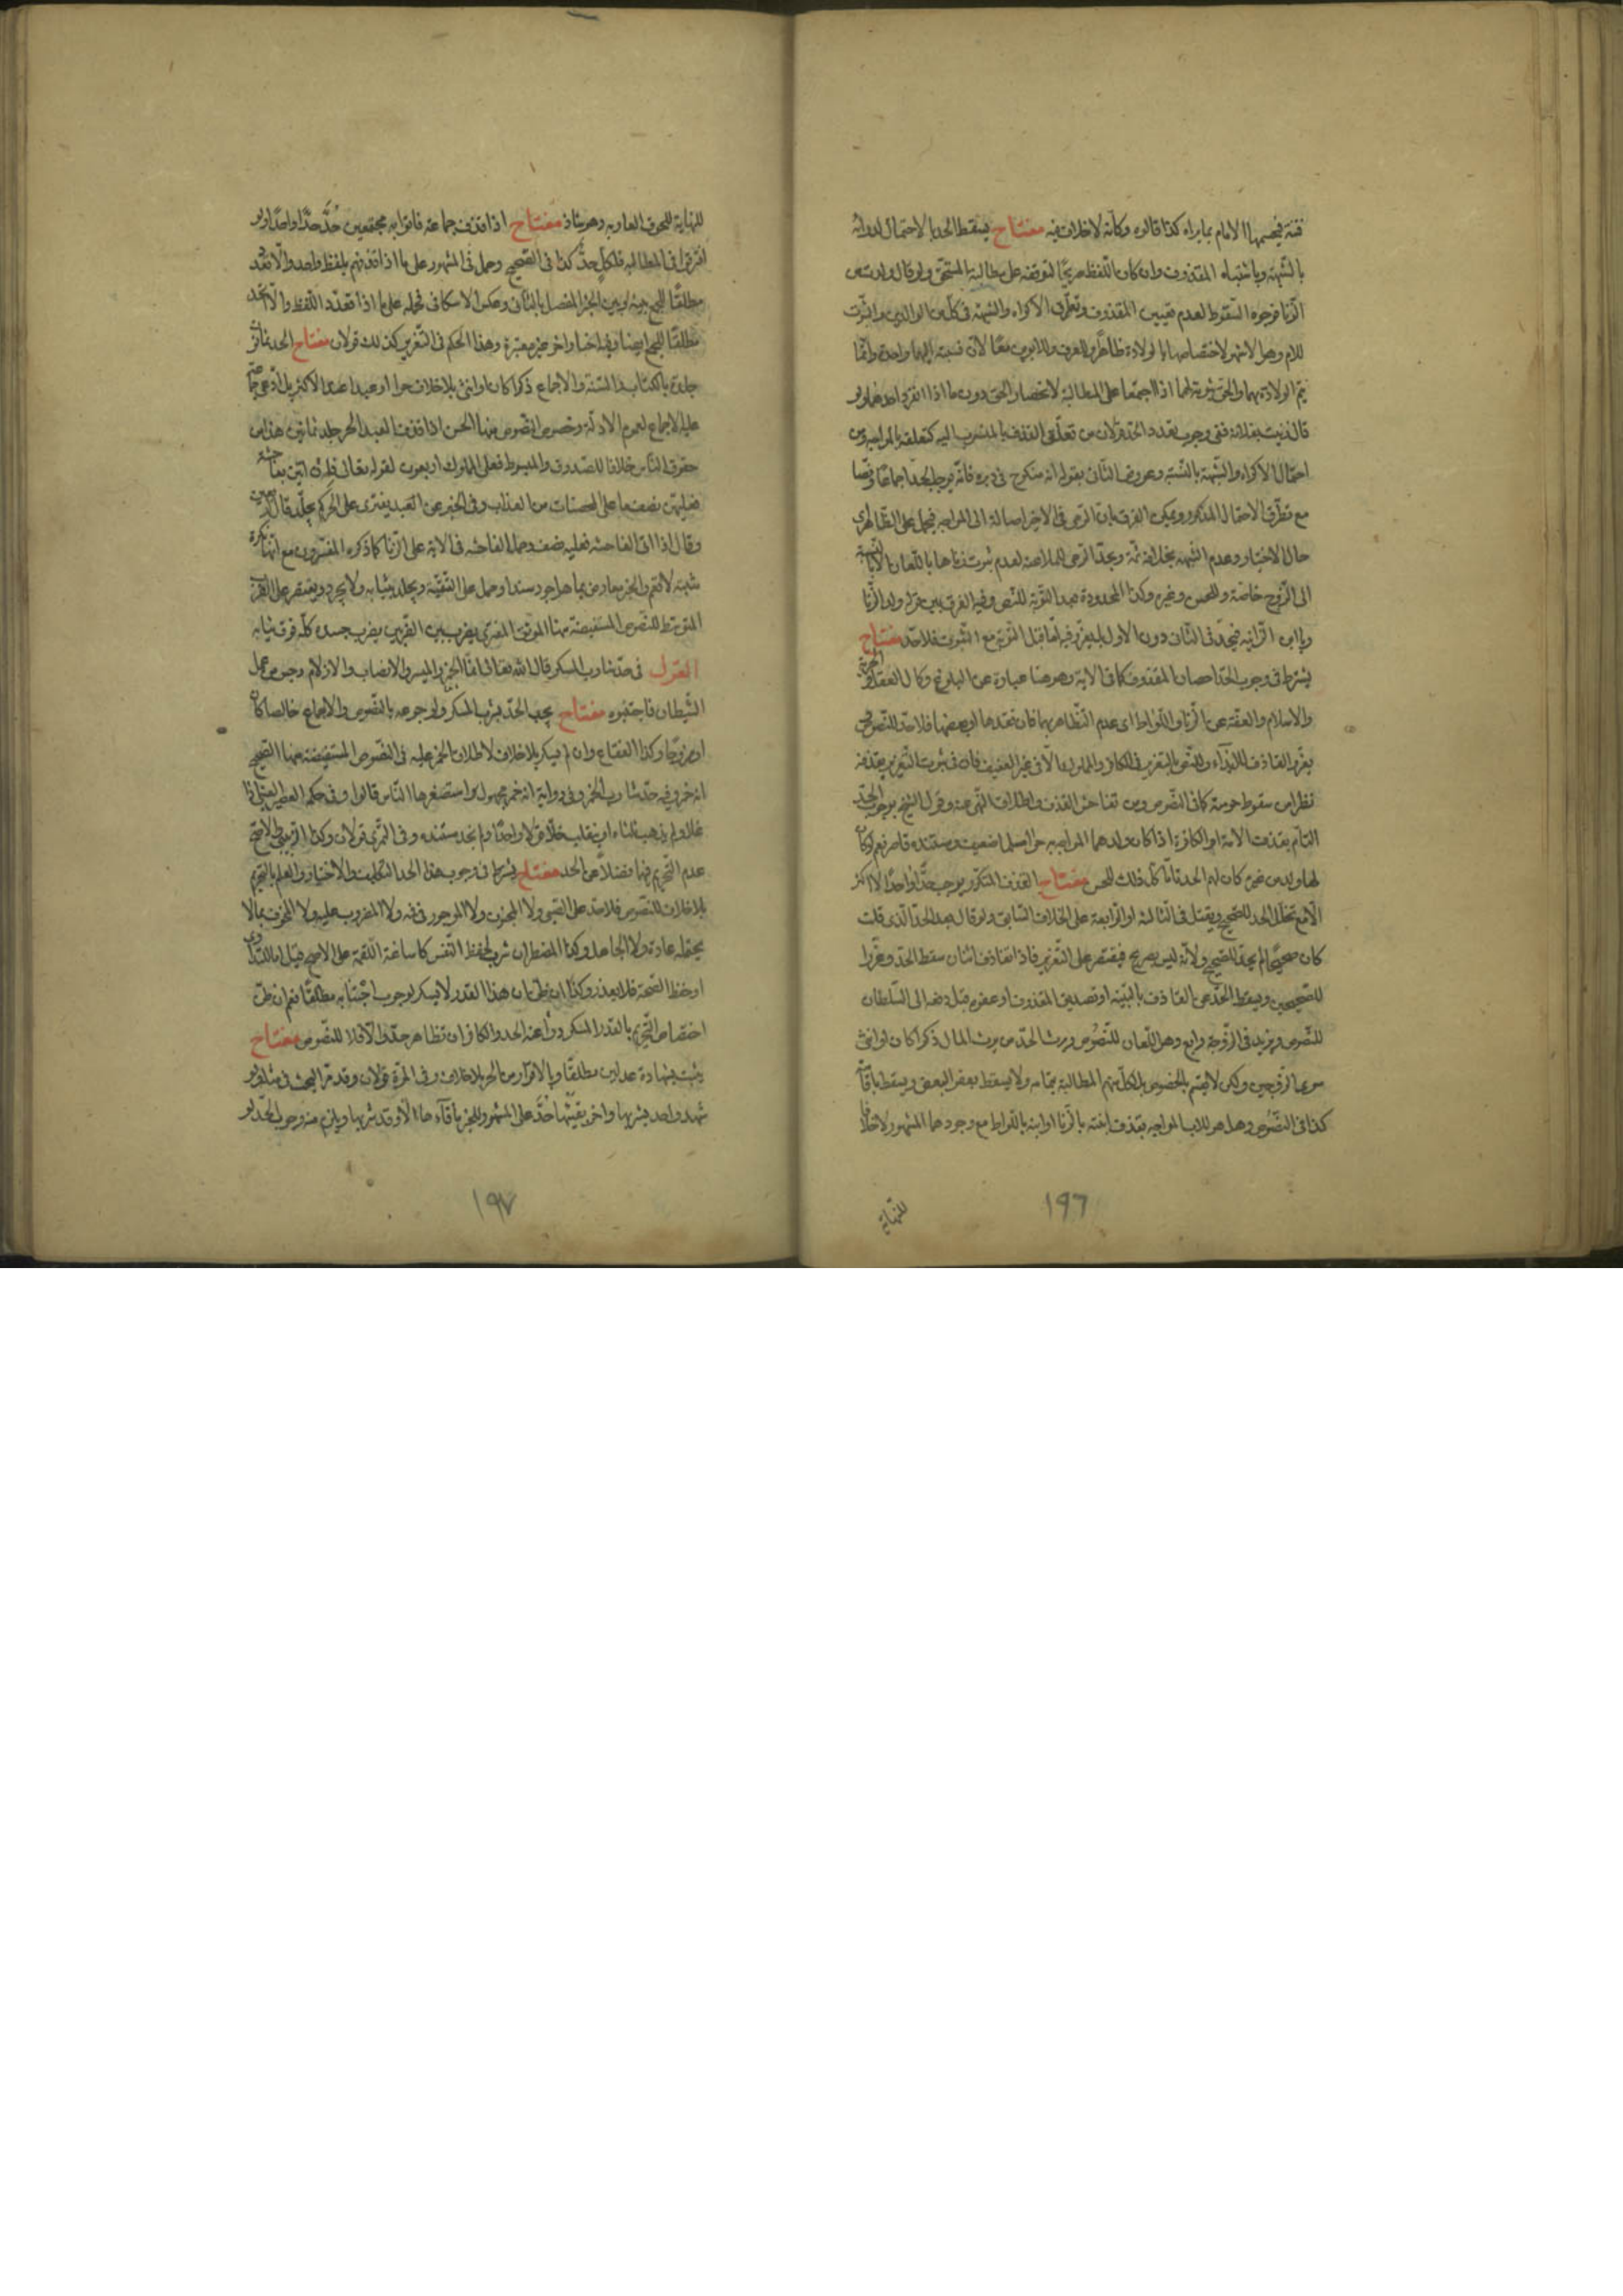 فتنة فيحسمها الامام بما يراه كذا قالوه وكانه لا خلاف فيه مفتاح يسقط الحد بالاحتمال لدرائه
بالشبهة وباشتباه المقذوف وان كان اللفظ صريحا لتوقفه على مطالبة المستحق ولو قال ولدت من
الزنا فوجوه السقوط لعدم تعيين المقذوف وتطرق الاكراه والشبهة في كل من الوالدين والثبوت
للام وهو الاشهر لاختصاصها بالولادة ظاهرا والعرف وللابوين معا لان نسبته اليهما واحدة وانما
يتم الولادة بهما والحق ثبوته لهما اذا اجتمعا على المطالبة لانحصار الحق دون ما اذا انفرد احدهما ولو
قال زنيت بفلانة ففي وجوب تعدد الحد قولان من تعلق القذف بالمنسوب اليه كتعلقه بالمواجه ومن
احتمال الاكراه والشبهة بالنسبة وعروض الثاني بقوله انه منكوح في دبره فانه يوجب الحد اجماعا ونصا
مع تطرق الاحتمال المذكور ويمكن الفرق بان الرمي في الاخير اصالة الى المواجه فيحمل على الظاهر
حال الاختيار وعدم الشبهة بخلافه ثمة ويحد الرامي للملاعنة لعدم ثبوت زناها باللعان الا بالنسبة
الى الزوج خاصة وللحسن وغيره وكذا المحدودة بعد التوبة للنص وفيه الفرق بين قوله ولد الزنا
ويا ابن الزانية فيحد في الثاني دون الاول بل يعزر فيه اما قبل التوبة مع الثبوت فلا حد مفتاح
يشترط في وجوب الحد احصان المقذوف كما في الاية وهو هنا عبارة عن البلوغ وكمال العقل والحرية
والاسلام والعفة عن الزنا واللواط اي عدم التظاهر بهما فان فقدها او بعضها فلا حد للنصوص
يعزر القاذف للايذاء وللنص بالتعزير في الكافر والمملوك الا في غير العفيف فان في ثبوت التعزير بقذفه
نظرا من سقوط حرمته كما في النصوص ومن تفاحش القذف واطلاق النهي عنه وقول الشيخ بوجوب الحد
التام بقذف الامة او الكافرة اذا كان ولدهما المواجه به حرا مسلما ضعيف ومستنده قاصر نعم لو كان
لها ولد من غيره كان لهم الحد قائما كل ذلك للحسن مفتاح القذف المتكرر يوجب حدا واحدا لا اكثر
الا مع تخلل الحد للصحيح ويقتل في الثالثة او الرابعة على الخلاف السابق ولو قال بعد الحد الذي قلت
كان صحيحا لم يحد للصحيح ولانه ليس بصريح فيقتصر على التعزير فاذا تقاذف اثنان سقط الحد وعزرا
للصحيحين ويسقط الحد عن القاذف بالبينة او تصديق المقذوف او عفوه قبل رفعه الى السلطان
للنصوص ويزيد في الزوجة رابع وهو اللعان للنصوص ويرث الحد من يرث المال ذكرا كان او انثى
سوى الزوجين ولكن لا يقسم بالحصص بل لكل منهم المطالبة بتمامه ولا يسقط بعفو البعض ويسقط باتفاقهم
كذا في النصوص وهل هو للاب المواجه بقذف ابنته بالزنا او ابنه باللواط مع وجودهما المشهور لا خلافا
للنهاية
١٩٦
للنهاية للحوق العار به وهو شاذ مفتاح اذا قذف جماعة فاتوا به مجتمعين حد حدا واحدا ولو
افترقوا في المطالبة فلكل حد كذا في الصحيح وحمل في المشهور على ما اذا قذفهم بلفظ واحد والا تعدد
مطلقا للجمع بينه وبين الخبر المفصل بالثاني وعكس الاسكافي فحمله على ما اذا تعدد اللفظ والا اتحد
مطلقا للجمع ايضا وفيه اخبار اخر غير معتبرة وهذا الحكم في التعزير كذلك قولان مفتاح الحد ثمانون
جلدة بالكتاب والسنة والاجماع ذكرا كان او انثى بلا خلاف حرا او عبدا عند الاكثر بل ادعى جماعة
عليه الاجماع لعموم الادلة وخصوص النصوص منها الحسن اذا قذف العبد الحر جلد ثمانين هذا من
حقوق الناس خلافا للصدوق والمبسوط فعلى المملوك اربعون لقوله تعالى فان اتين بفاحشة
فعليهن نصف ما على المحصنات من العذاب وفي الخبر عن العبد يفتري على الحر كم يجلد قال اربعين
وقال اذا اتى الفاحشة فعليه نصف وحمل الفاحشة في الاية على الزنا كما ذكره المفسرون مع انها نكرة
مثبتة لا تعم والخبر معارض بما هو اجود سندا وحمل على التقية ويجلد بثيابه ولا يجرد ويقتصر على الضرب
المتوسط للنصوص المستفيضة منها الموثق المفتري يضرب بين الضربين يضرب جسده كله فوق ثيابه
القول في حد شارب المسكر قال الله تعالى انما الخمر والميسر والانصاب والازلام رجس من عمل
الشيطان فاجتنبوه مفتاح يجب الحد بشرب المسكر ولو جرعه بالنصوص والاجماع خالصا كان
او ممزوجا وكذا الفقاع وان لم يسكر بلا خلاف لاطلاق الخمر عليه في النصوص المستفيضة منها الصحيح
انه خمر وفيه حد شارب الخمر وفي رواية انه خمر مجهول او استصغرها الناس قالوا وفي حكمه العصير العنبي اذا
غلا ولم يذهب ثلثاه او ينقلب خلا قولا واحدا ولم نجد مستنده وفي التمري قولان وكذا الزبيبي والاصح
عدم التحريم فيهما فضلا عن الحد مفتاح يشترط في وجوب هذا الحد التكليف والاختيار والعلم بالتحريم
بلا خلاف للنصوص فلا حد على الصبي ولا المجنون ولا الموجور في فمه ولا المضروب عليه ولا المخوف بما لا
يحتمله عادة ولا الجاهل وكذا المضطر ان شرب لحفظ النفس كاساغة اللقمة على الاصح قيل اما للتداوي
او حفظ الصحة فلا يعذر وكذا ان ظن ان هذا القدر لا يسكر لوجوب اجتنابه مطلقا نعم ان ظن
اختصاص التحريم بالقدر المسكر درأ عنه الحد والكافر ان تظاهر حد والا فلا للنصوص مفتاح
يثبت بشهادة عدلين مطلقا وبالاقرار من الحر بلا خلاف وفي المرة قولان وقد مر البحث في مثله ولو
شهد واحد بشربها واخر بقيئها حد على المشهور للخبر ما قاءها الا وقد شربها ويلزم منه وجوب الحد لو
١٩٧